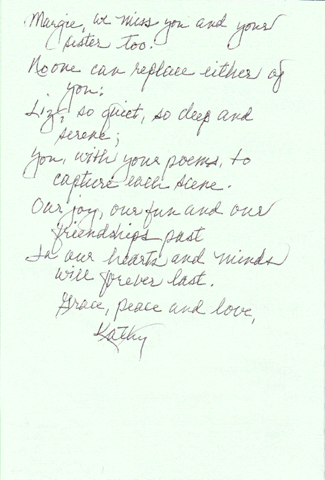 Margie, we miss you and your
sister too.
No one can replace either of
you.
Liz, so quiet, so deep and
serene;
You, with your poems, to
capture each scene.
Our joy, our fun and our
friendships past
In our hearts and minds
will forever last.
Grace, peace and love,
Kathy